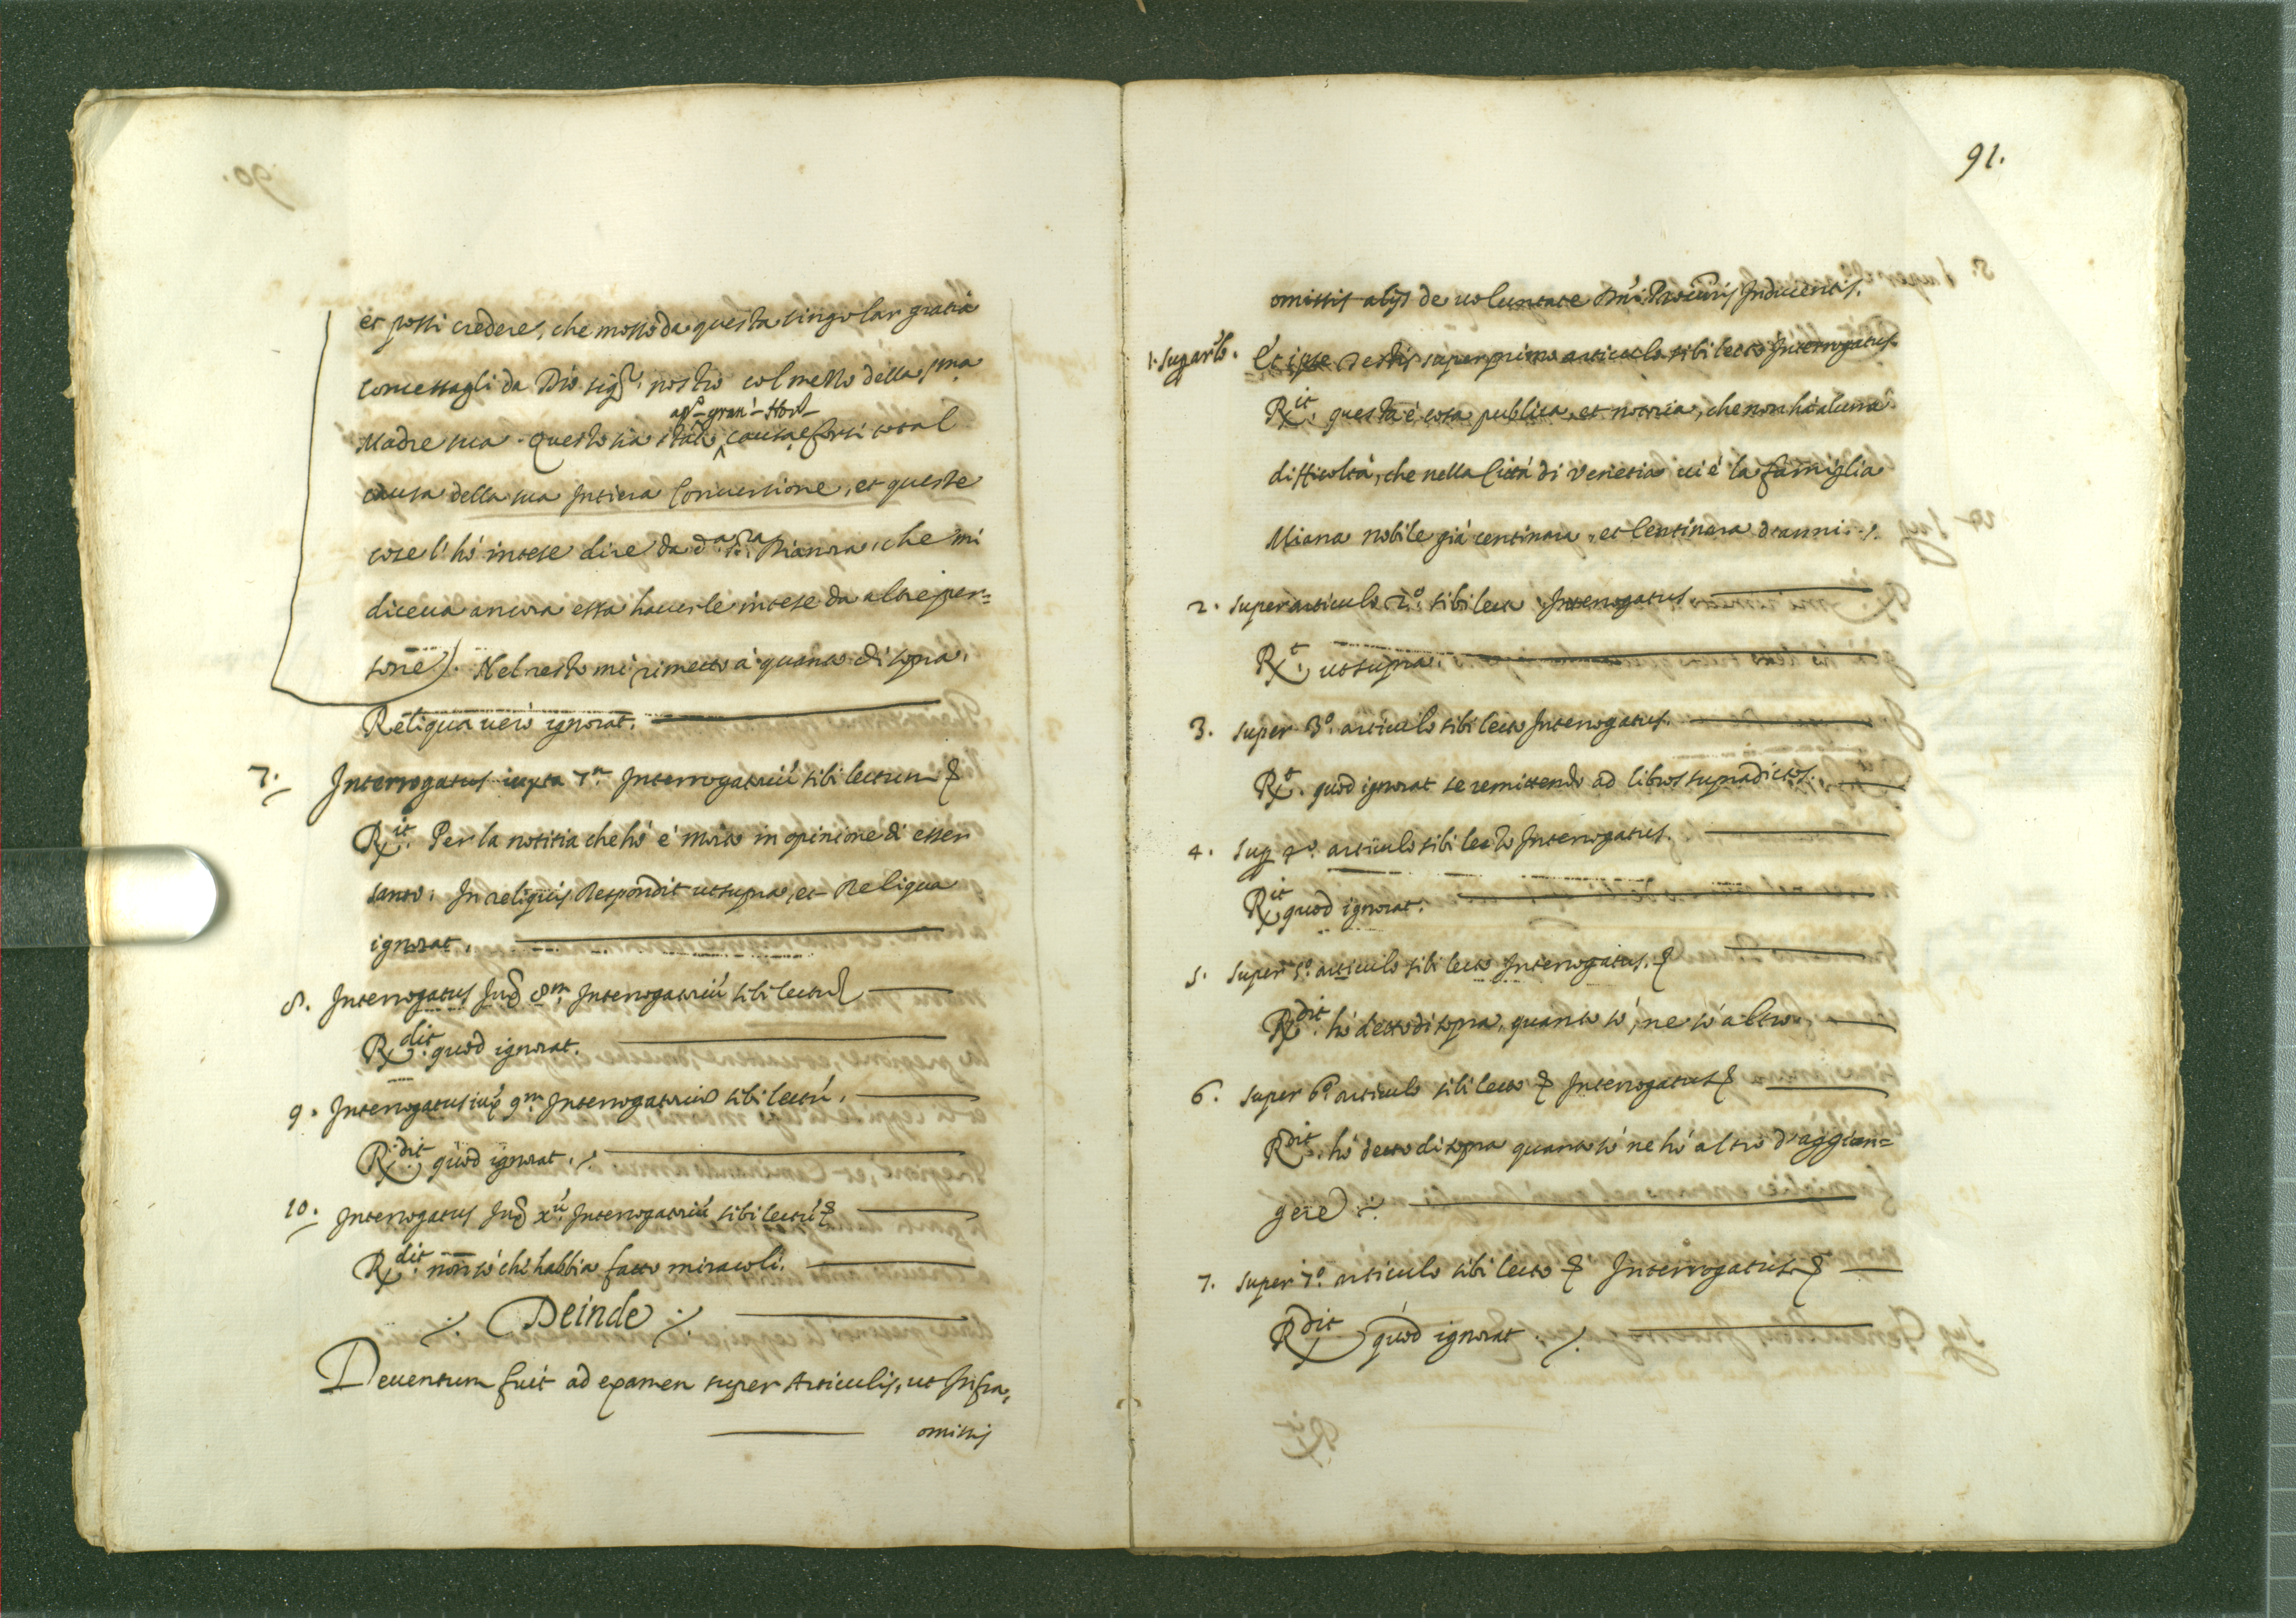 et possi credere, che mosso da questa singolar gratia
concessagli da Dio sig.r nostro col mezzo della s.ma
Madre sua. Questo sia stato causa, e forsi total
causa della sua intiera Conversione, et queste
cose l'hó intese dire da d.a s.ra Dianora, che mi
diceva ancora essa haverle intese da altre per=
sone). Nel resto mi rimetto á quanto di sopra.
Reliqua verò ignorat.
7. Interrogatus iuxta 7.m Interrogatoriũ sibi lectum &
R.it Per la notitia che hó é morto in opinione di esser
santo. In reliquis Respondit ut supra, et Reliqua
ignorat.
8. Interrogatus Jux.a 8.m Interrogatoriũ sibi lectũ &
R.dit quod ignorat.
9. Interrogatus iux.a 9.m Interrogatoriũ sibi lectũ.
R.dit quod ignorat. ./.
10. Interrogatus Jux.a x.ũ Interrogatoriũ sibi lectũ &
R.dit non só ch'habbia fatto miracoli.
./. Deinde ./.
Deventum fuit ad examen super Articulis, ut Infra,
omissis
91.
omissis alijs de voluntate Dñi Procuris Inducentis.
1. Sup. ar.lo. Et ipse Testis super primo articulo sibi lecto Interrogatus.
R.it questa é cosa publica, et notoria, che non há alcuna
difficoltá, che nella Cittá di Venetia vi é la famiglia
Miana nobile giá centinara, et Centinara d'anni. ./.
2. Super articulo 2.o sibi lecto Interrogatus
R.t ut supra.
3. Super 3.o articulo sibi lecto Interrogatus.
R.t quod ignorat se remittendo ad libros supradictos.
4. Sup. 4.o articulo sibi lecto Interrogatus.
R.it quod ignorat.
5. Super 5.o articulo sibi lecto Interrogatus. &
R.dit hó detto di sopra, quanto só, ne só altro.
6. Super 6.o articulo sibi lecto & Interrogatus &
R.dit hó detto di sopra quanto só ne hó altro d'aggion=
gere ./.
7. Super 7.o articulo sibi lecto & Interrogatus &
R.dit quod ignorat ./.